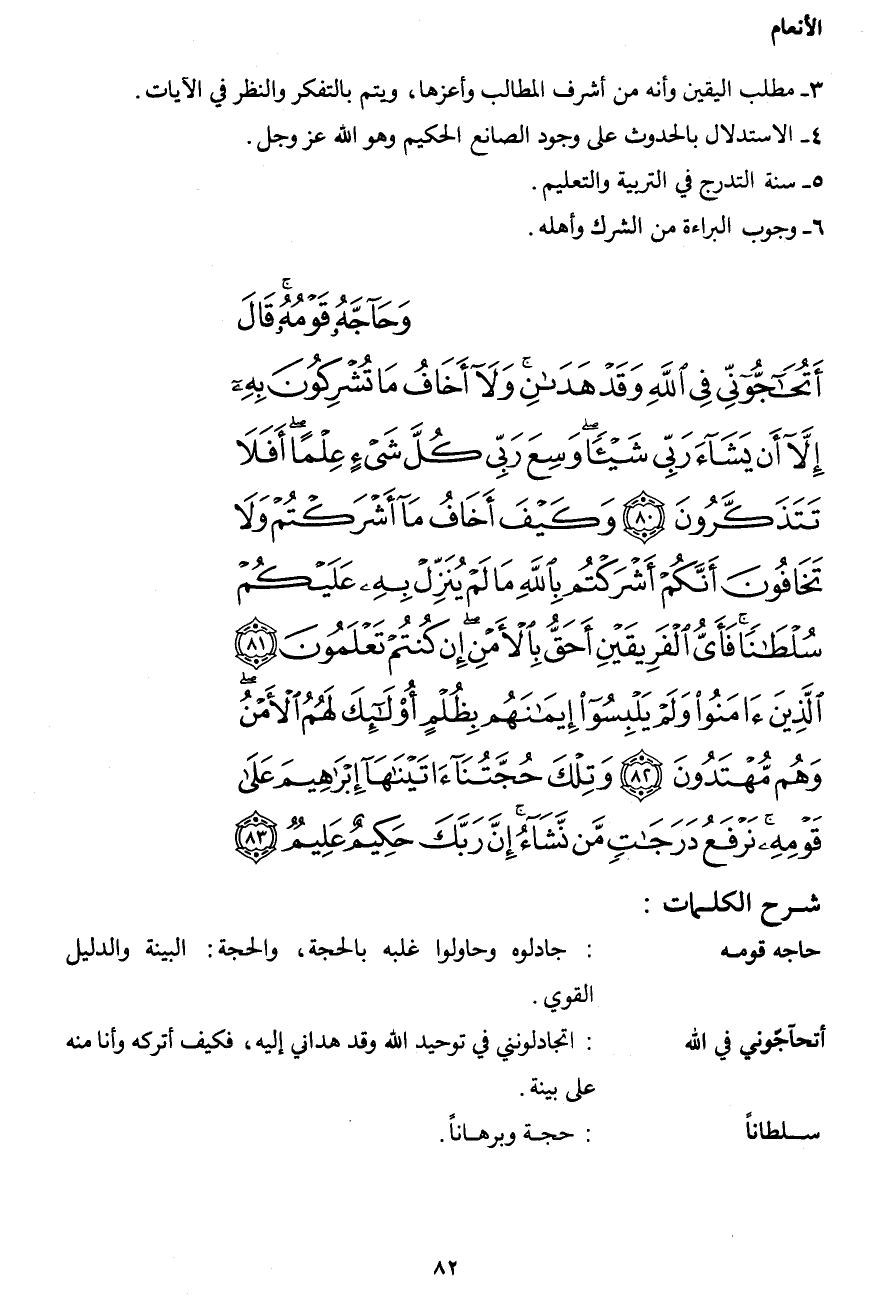 الأنعام
٣ـ مطلب اليقين وأنه من أشرف المطالب وأعزها، ويتم بالتفكر والنظر في الآيات.
٤ـ الاستدلال بالحدوث على وجود الصانع الحكيم وهو الله عز وجل.
٥ـ سنة التدرج في التربية والتعليم.
٦ـ وجوب البراءة من الشرك وأهله.
وَحَآجَّهُۥ قَوْمُهُۥۚ قَالَ
أَتُحَٰٓجُّوٓنِّى فِى ٱللَّهِ وَقَدْ هَدَىٰنِۚ وَلَآ أَخَافُ مَا تُشْرِكُونَ بِهِۦٓ
إِلَّآ أَن يَشَآءَ رَبِّى شَيْـًٔاۗ وَسِعَ رَبِّى كُلَّ شَىْءٍ عِلْمًاۗ أَفَلَا
تَتَذَكَّرُونَ ٨٠ وَكَيْفَ أَخَافُ مَآ أَشْرَكْتُمْ وَلَا
تَخَافُونَ أَنَّكُمْ أَشْرَكْتُم بِٱللَّهِ مَا لَمْ يُنَزِّلْ بِهِۦ عَلَيْكُمْ
سُلْطَٰنًاۚ فَأَىُّ ٱلْفَرِيقَيْنِ أَحَقُّ بِٱلْأَمْنِۖ إِن كُنتُمْ تَعْلَمُونَ ٨١
ٱلَّذِينَ ءَامَنُوا۟ وَلَمْ يَلْبِسُوٓا۟ إِيمَٰنَهُم بِظُلْمٍ أُو۟لَٰٓئِكَ لَهُمُ ٱلْأَمْنُۖ
وَهُم مُّهْتَدُونَ ٨٢ وَتِلْكَ حُجَّتُنَآ ءَاتَيْنَٰهَآ إِبْرَٰهِيمَ عَلَىٰ
قَوْمِهِۦۚ نَرْفَعُ دَرَجَٰتٍ مَّن نَّشَآءُۚ إِنَّ رَبَّكَ حَكِيمٌ عَلِيمٌ ٨٣
شرح الكلمات :
حاجه قومه : جادلوه وحاولوا غلبه بالحجة، والحجة: البينة والدليل
القوي.
أتحآجّوني في الله : اتجادلونني في توحيد الله وقد هداني إليه، فكيف أتركه وأنا منه
على بينة.
سلطاناً : حجة وبرهاناً.
٨٢